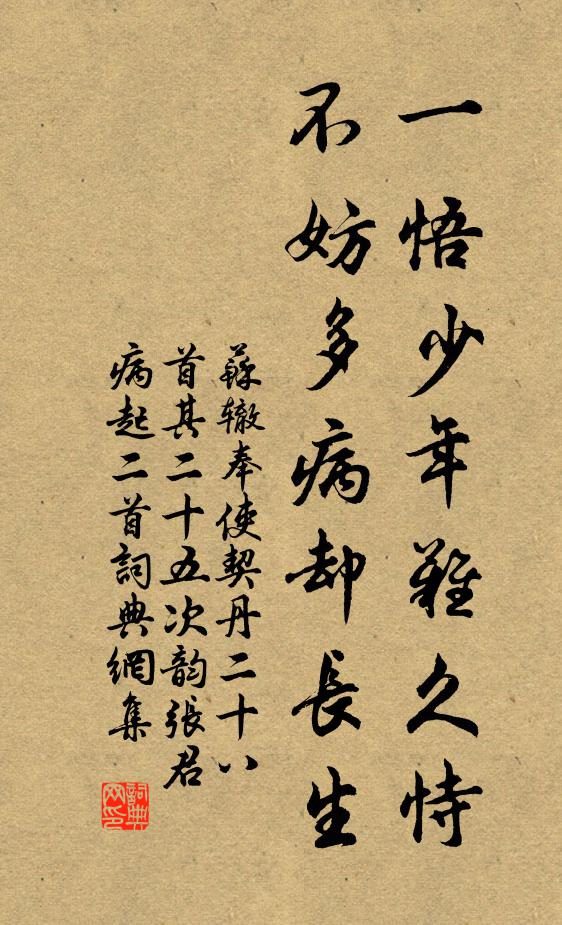 一悟少年難久恃
不妨多病却長生
蘇辙奉使契丹二十八
首其二十五次韵張君
病起二首詞典網集
詞典网印